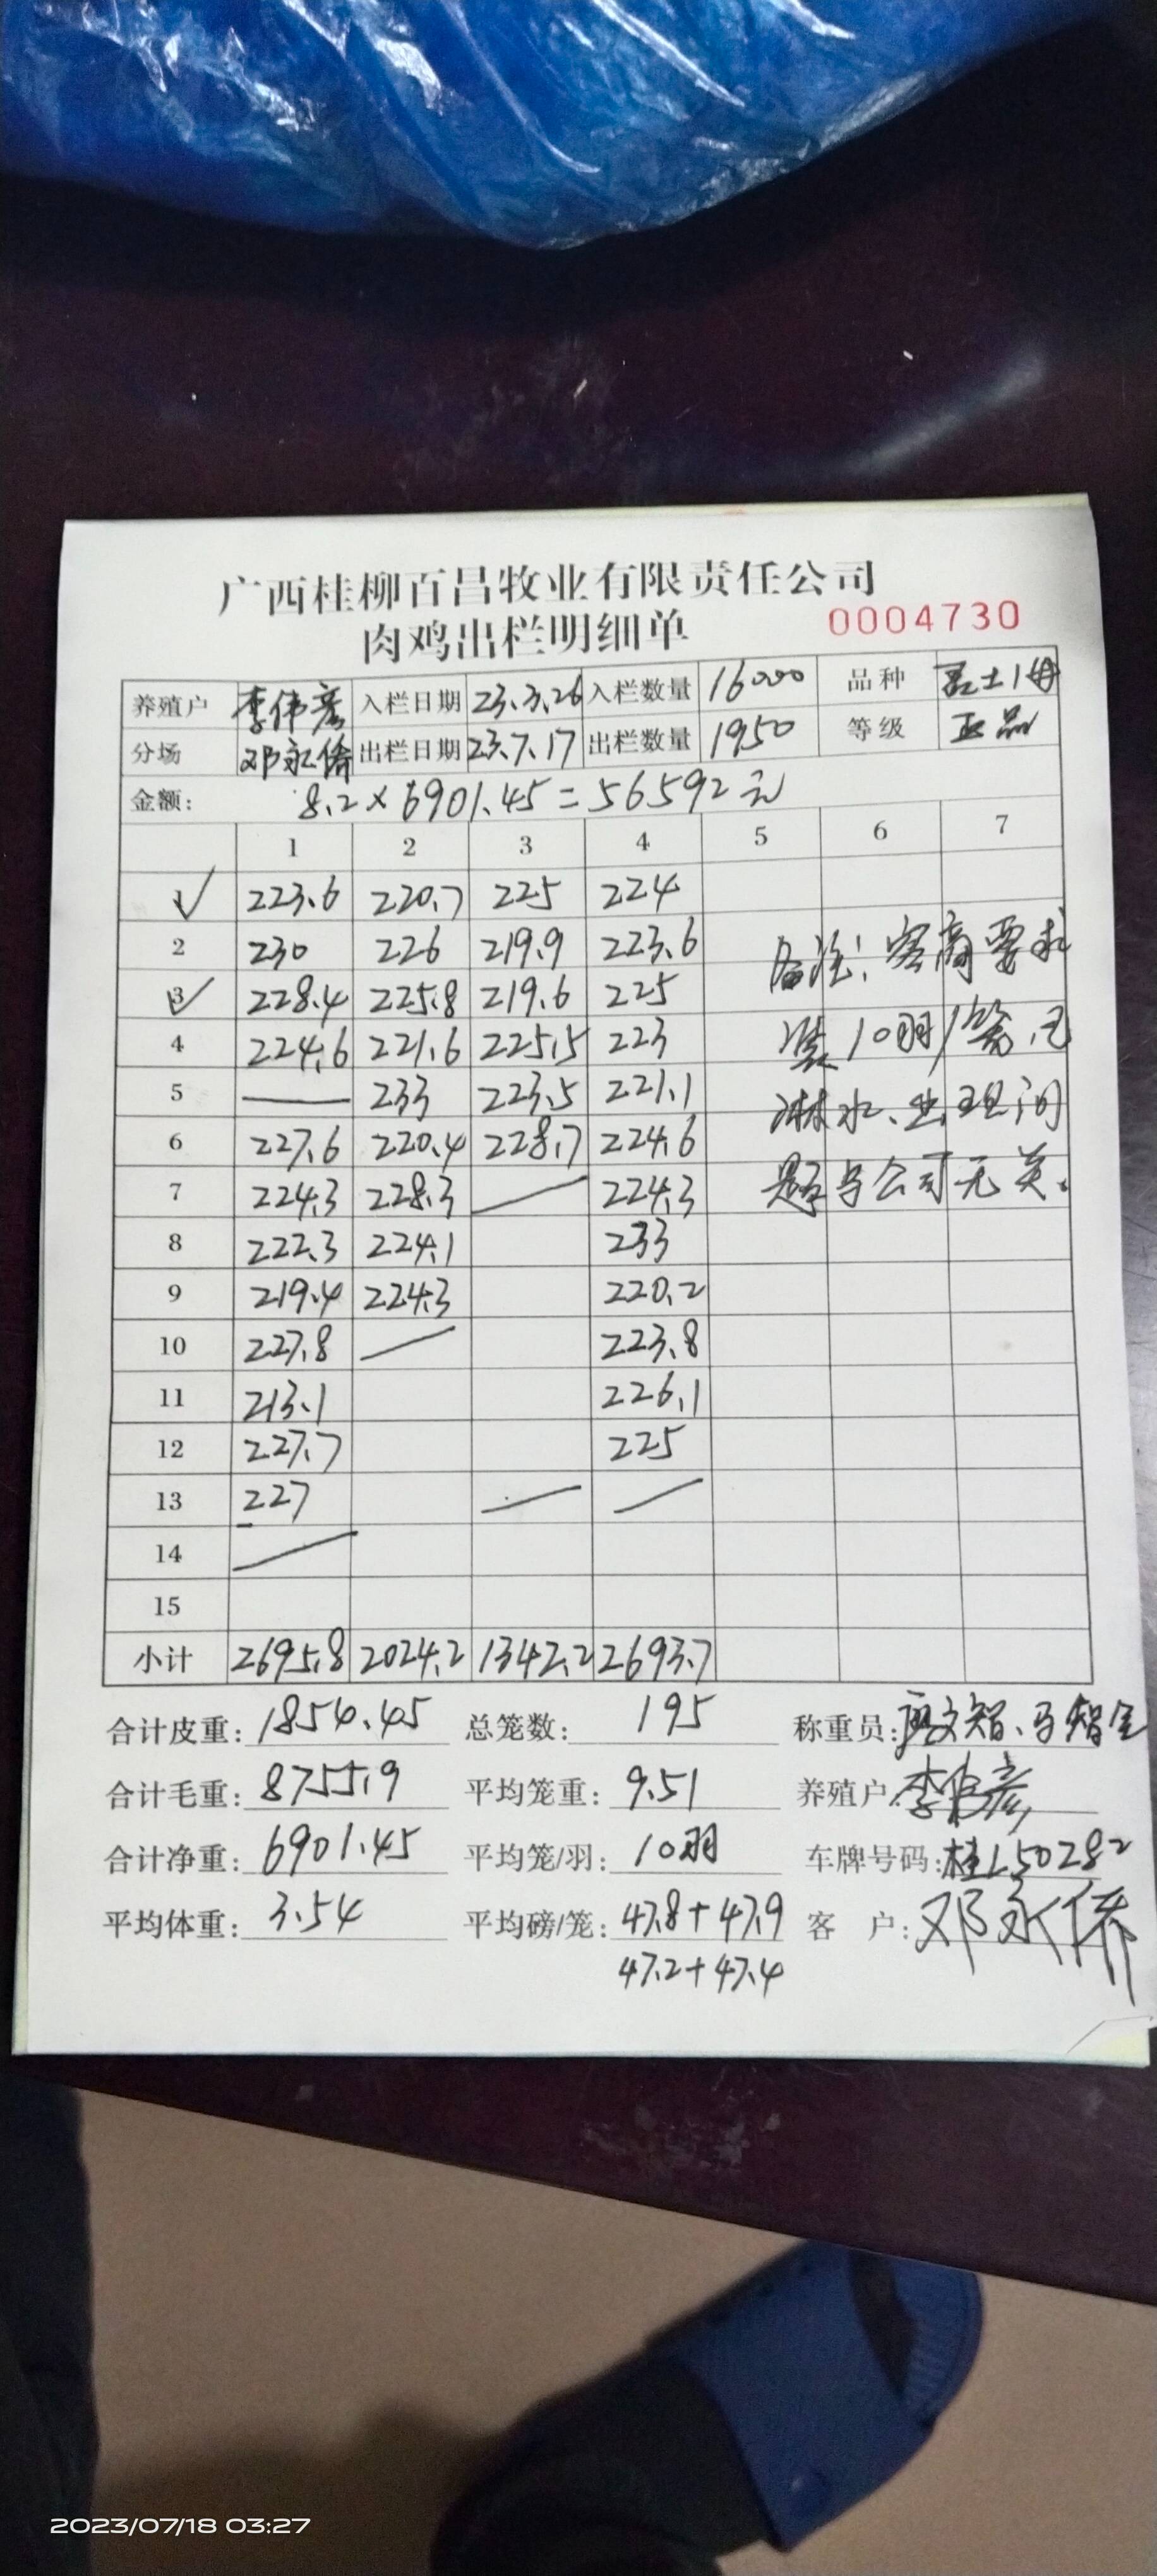 广西桂柳百昌牧业有限责任公司
肉鸡出栏明细单
0004730
养殖户 李伟彦 入栏日期 23.3.26 入栏数量 16000 品种 土1母
分场 邓永侨 出栏日期 23.7.17 出栏数量 1950 等级 正品
金额: 8.2×6901.45=56592元
1 2 3 4 5 6 7
1 223.6 220.7 225 224
2 230 226 219.9 223.6 备注:客商要求
3 228.4 225.8 219.6 225
4 224.6 221.6 225.5 223 装10羽/笼,已
5 — 233 223.5 221.1 淋水、出现问
6 227.6 220.4 228.7 224.6
7 224.3 228.3 224.3 题与公司无关。
8 222.3 224.1 233
9 219.4 224.3 220.2
10 227.8 223.8
11 213.1 226.1
12 227.7 225
13 227
14
15
小计 2695.8 2024.2 1342.2 2693.7
合计皮重: 1854.45 总笼数: 195 称重员: 文智、马智全
合计毛重: 8755.9 平均笼重: 9.51 养殖户: 李伟彦
合计净重: 6901.45 平均笼/羽: 10羽 车牌号码: 桂L50282
平均体重: 3.54 平均磅/笼: 47.8+47.9 客 户: 邓永侨
47.2+47.4
2023/07/18 03:27